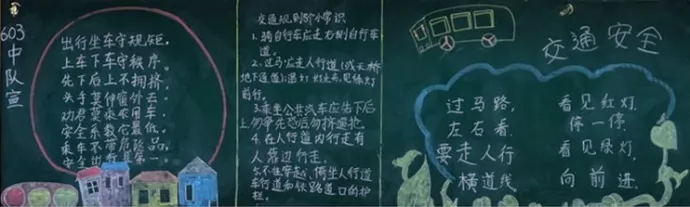 603中队宣
出行坐车守规矩,
上车下车守秩序。
先下后上不拥挤,
头手莫伸窗外去。
劝君莫乘农用车
安全系数它最低。
乘车不带危险品,
安全出行第一
交通规则5个小常识
1.骑自行车应走右侧自行车
道。
2.过马应走人行道(或天桥
地下通道):遇灯 见绿灯
前行。
3.乘坐公共汽车应先下后
上勿争先恐后勿挤要抢
4.在人行道内行走有
人靠边行走。
5.不准穿越、倚坐人行道
车行道和铁路道口的护
栏。
交通安全
过马路,
左右看.
要走人行
横道线
看见红灯.
停一停.
看见绿灯,
向前进.